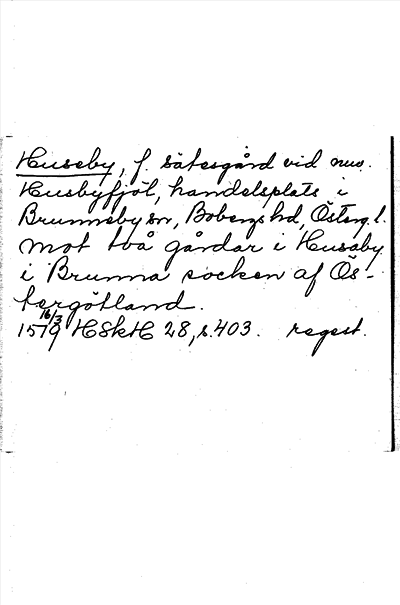 Huseby, f. sätesgård vid nuv.
Husbyfjöl, handelsplats i
Brunneby sn, Bobergs hd, Östergl.
mot två gårdar i Husaby
i Brunna socken af Ös-
tergötland.
16/3
1579 HSkH 28, s. 403. regest.